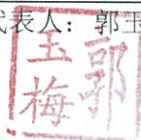 代表人：郭玉
郭玉梅